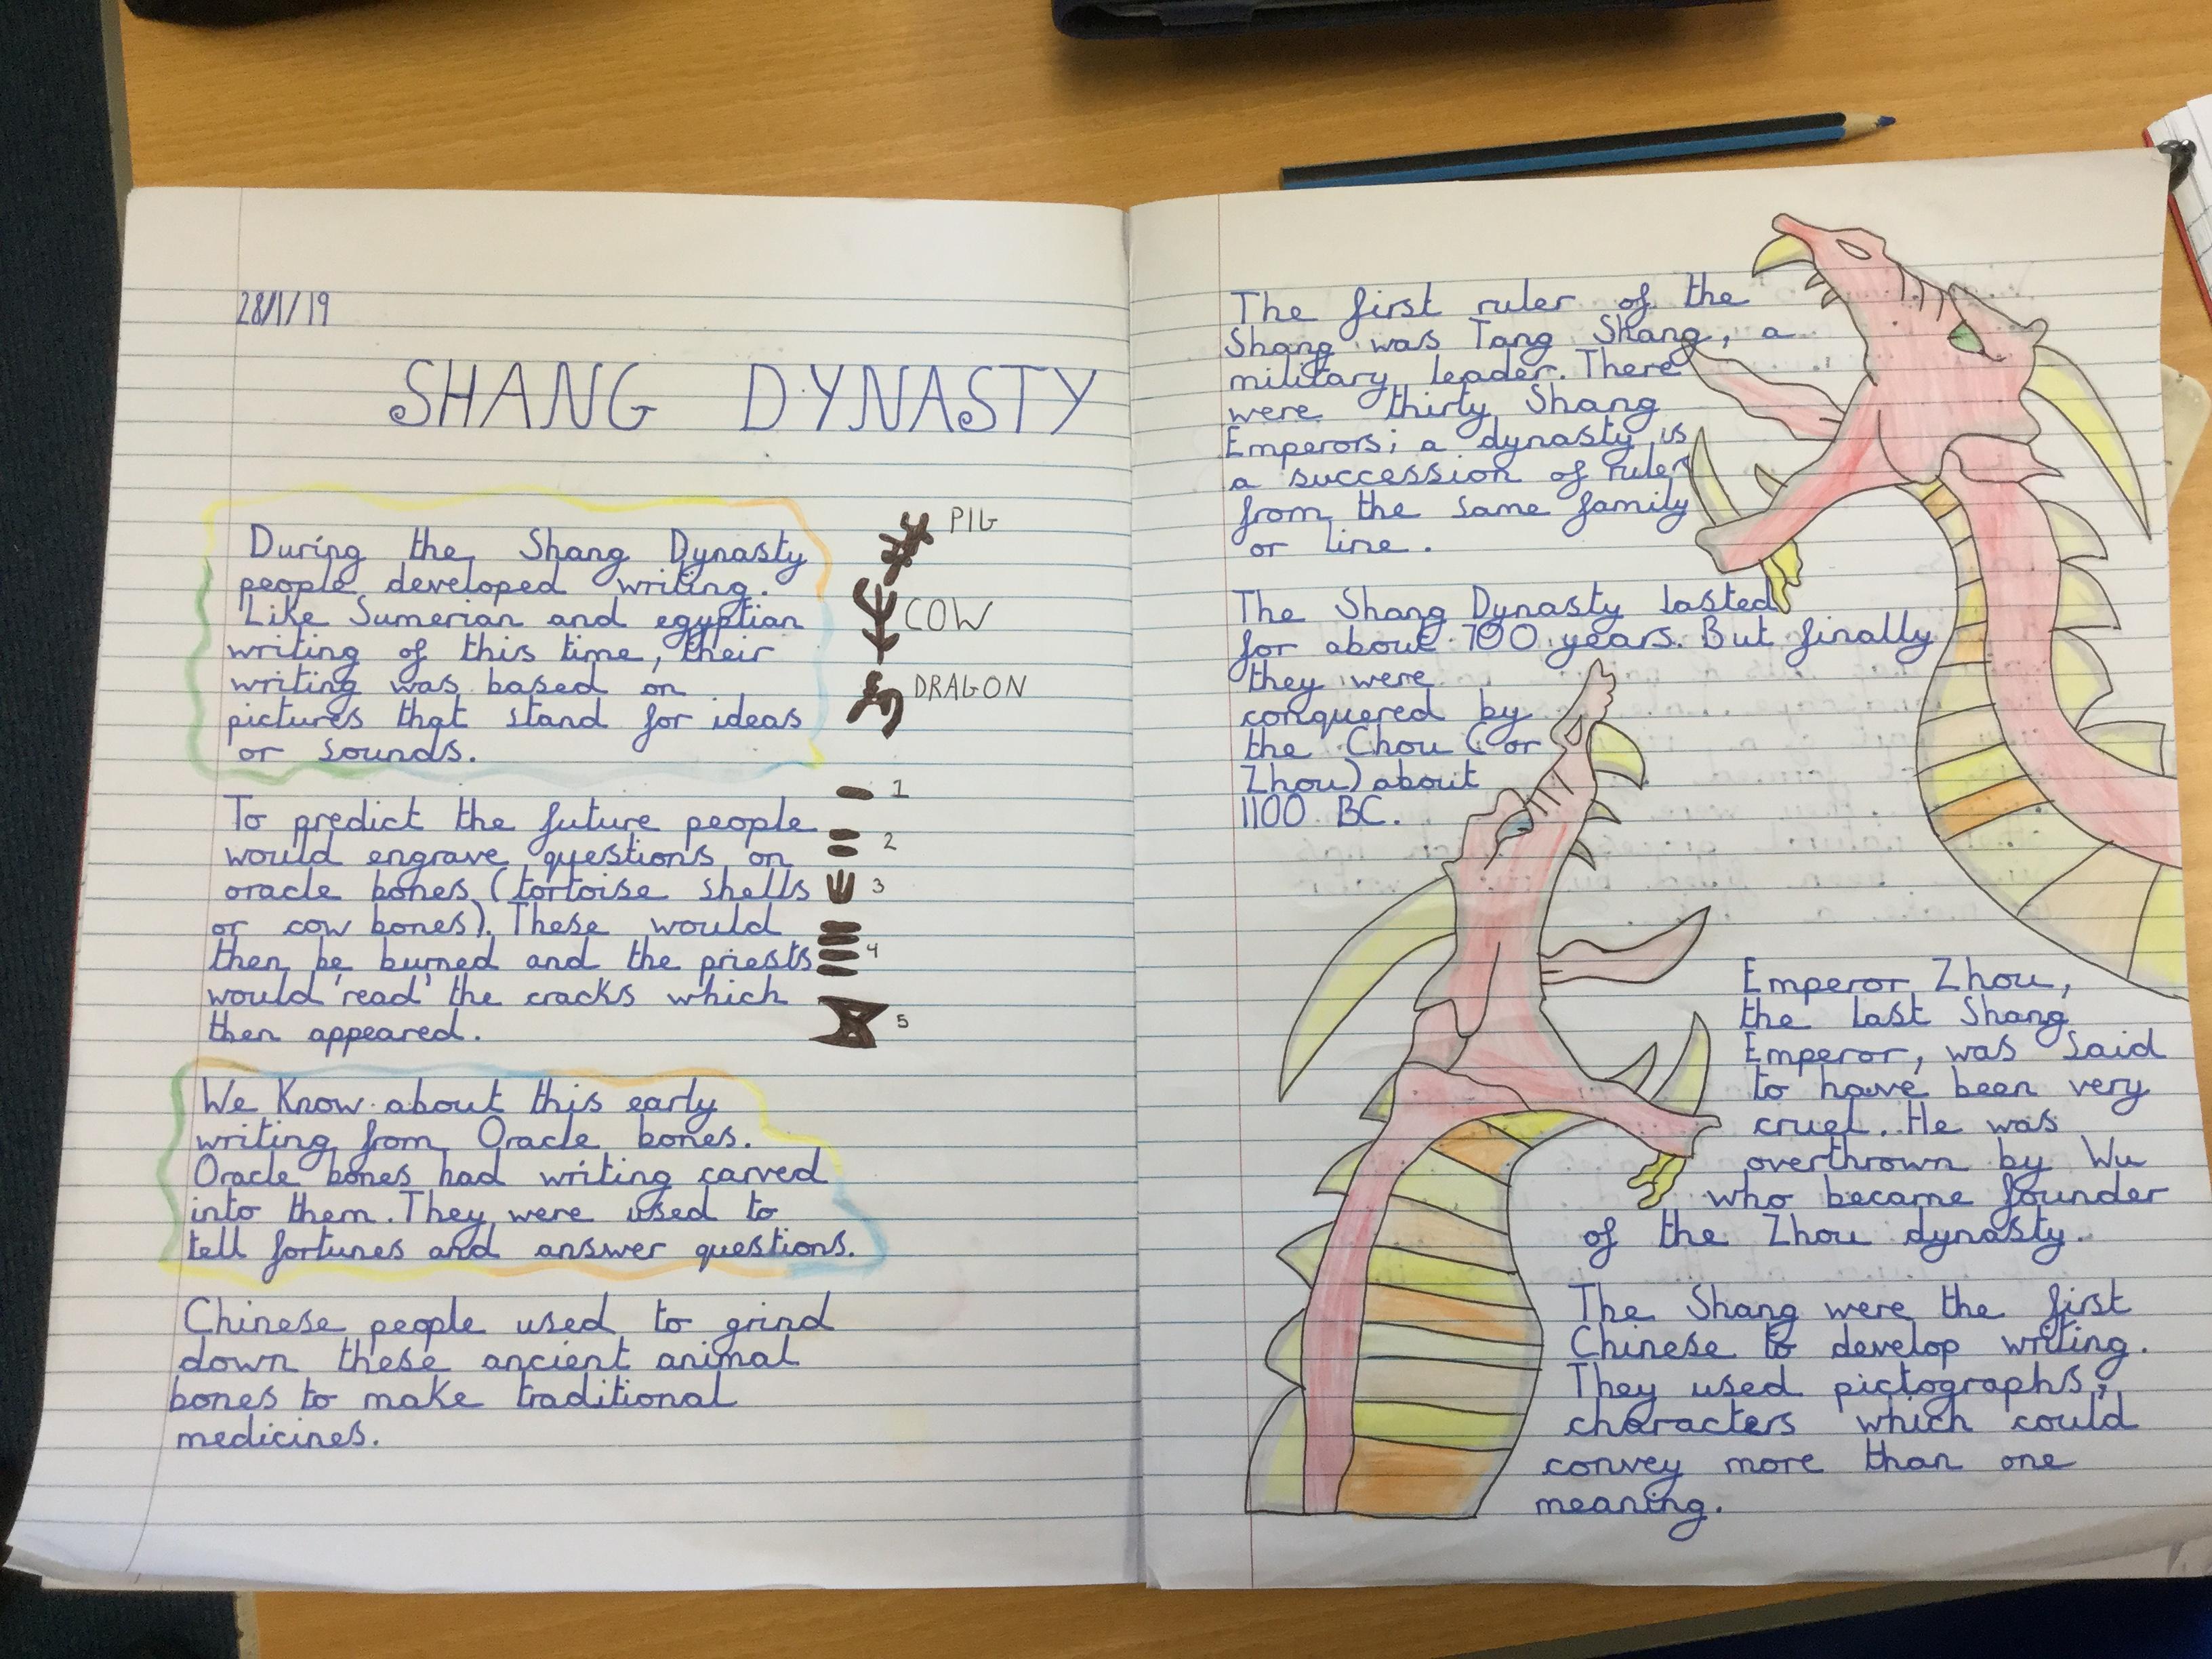 28/1/19
SHANG DYNASTY
During the Shang Dynasty
people developed writing.
Like Sumerian and egyptian
writing of this time, their
writing was based on
pictures that stand for ideas
or sounds.
PIG
COW
DRAGON
To predict the future people
would engrave questions on
oracle bones (tortoise shells
or cow bones). These would
then be burned and the priests
would 'read' the cracks which
then appeared.
1
2
3
4
5
We Know about this early
writing from Oracle bones.
Oracle bones had writing carved
into them. They were used to
tell fortunes and answer questions.
Chinese people used to grind
down these ancient animal
bones to make traditional
medicines.
The first ruler of the
Shang was Tang Shang, a
military leader. There
were thirty Shang
Emperors; a dynasty is
a succession of rulers
from the same family
or line.
The Shang Dynasty lasted
for about 700 years. But finally
they were
conquered by
the Chou (or
Zhou) about
1100 BC.
Emperor Zhou,
the last Shang
Emperor, was said
to have been very
cruel. He was
overthrown by Wu
who became founder
of the Zhou dynasty.
The Shang were the first
Chinese to develop writing.
They used pictographs;
characters which could
convey more than one
meaning.